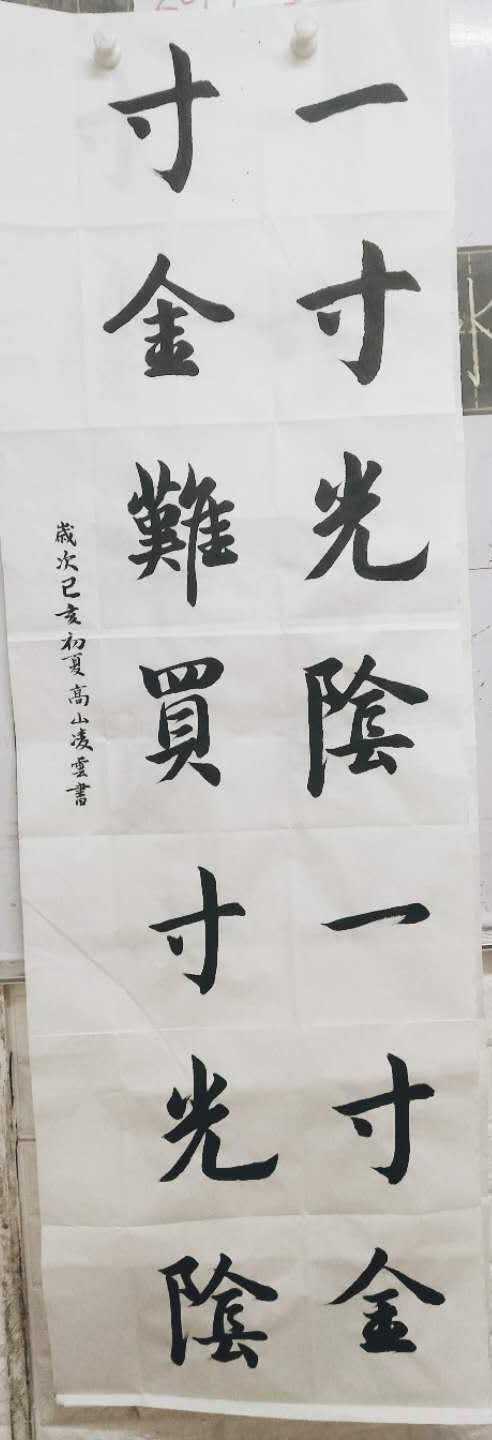 一寸光陰一寸金
寸金難買寸光陰
歲次己亥初夏高山凌雲書